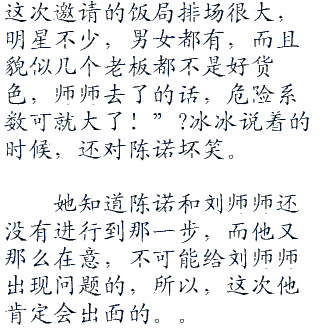 这次邀请的饭局排场很大，
明星不少，男女都有，而且
貌似几个老板都不是好货
色，师师去了的话，危险系
数可就大了！”?冰冰说着的
时候，还对陈诺坏笑。
她知道陈诺和刘师师还
没有进行到那一步，而他又
那么在意，不可能给刘师师
出现问题的，所以，这次他
肯定会出面的。。